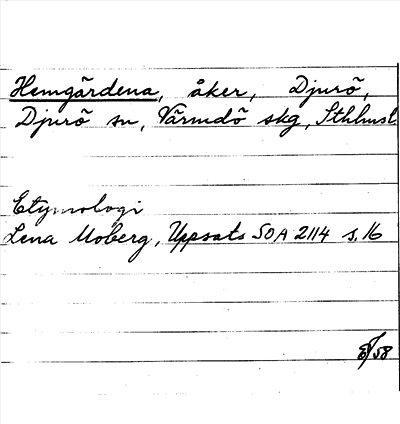 Hemgårdena, åker, Djurö,
Djurö sn, Värmdö skg, Sthlmsl
Etymologi
Lena Moberg, Uppsats SOA 2114 s. 16